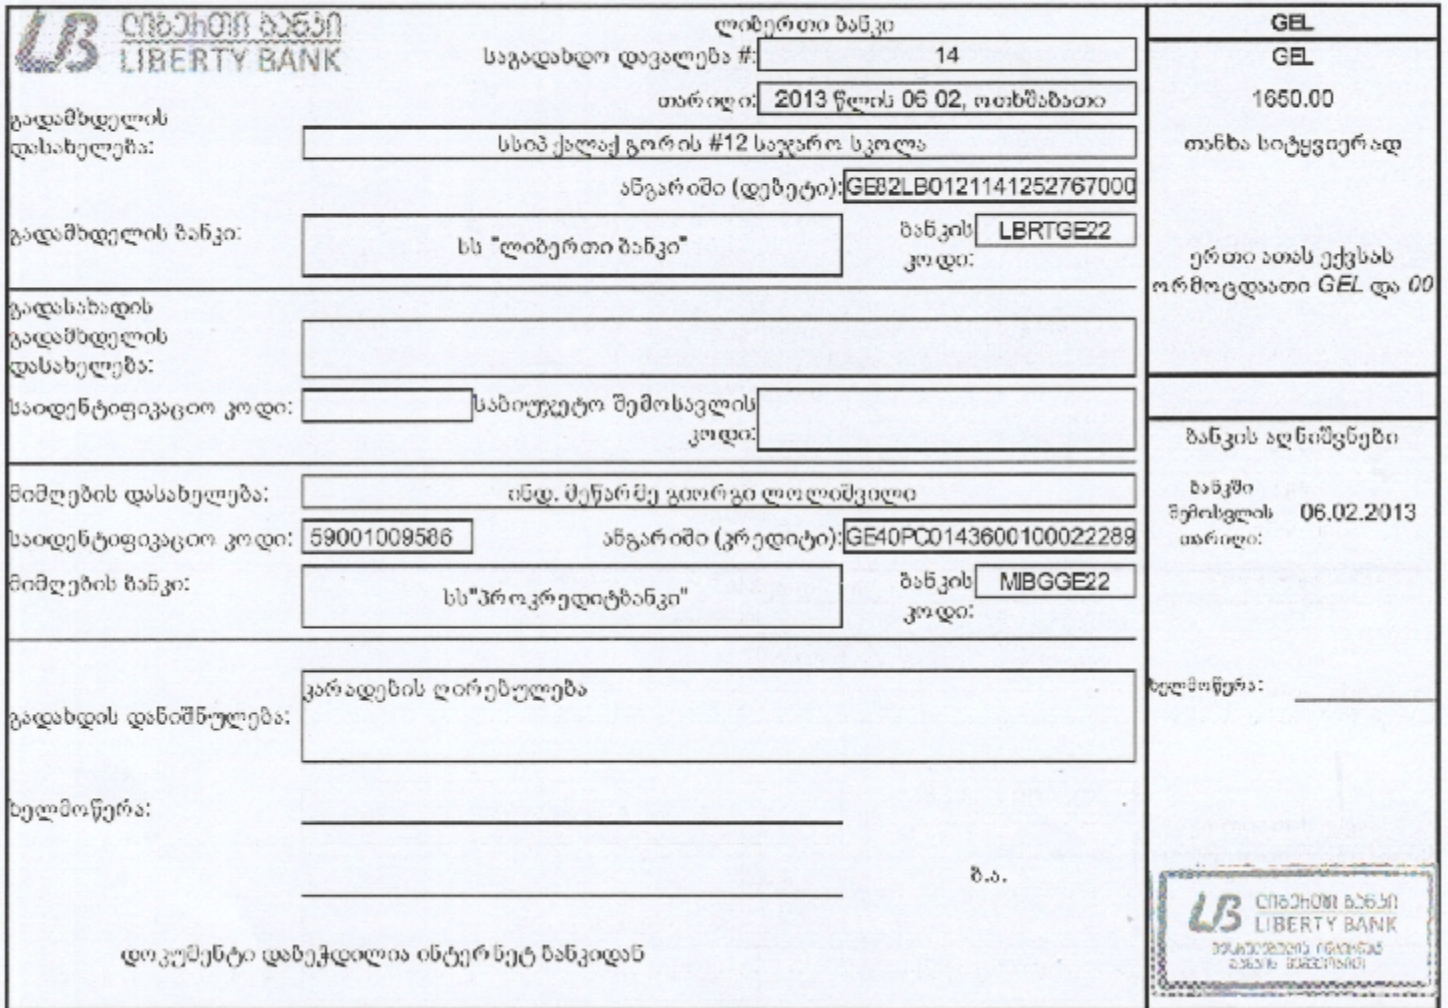 ლიბერთი ბანკი
LIBERTY BANK
ლიბერთი ბანკი
საგადახდო დავალება #: 14
თარიღი: 2013 წლის 06 02, ოთხშაბათი
გადამხდელის
დასახელება:
სსიპ ქალაქ გორის #12 საჯარო სკოლა
ანგარიში (დებეტი): GE82LB0121141252767000
გადამხდელის ბანკი: სს "ლიბერთი ბანკი"
ბანკის კოდი: LBRTGE22
გადასახადის
გადამხდელის
დასახელება:
საიდენტიფიკაციო კოდი:
საბიუჯეტო შემოსავლის
კოდი:
მიმღების დასახელება: ინდ. მეწარმე გიორგი ლოლიშვილი
საიდენტიფიკაციო კოდი: 59001009586
ანგარიში (კრედიტი): GE40PC0143600100022289
მიმღების ბანკი: სს"პროკრედიტბანკი"
ბანკის კოდი: MIBGGE22
გადახდის დანიშნულება: კარადების ღირებულება
ხელმოწერა:
ბ.ა.
დოკუმენტი დაბეჭდილია ინტერნეტ ბანკიდან
GEL
GEL
1650.00
თანხა სიტყვიერად
ერთი ათას ექვსას
ორმოცდაათი GEL და 00
ბანკის აღნიშვნები
ბანკში
შემოსვლის 06.02.2013
თარიღი:
ხელმოწერა:
ლიბერთი ბანკი
LIBERTY BANK